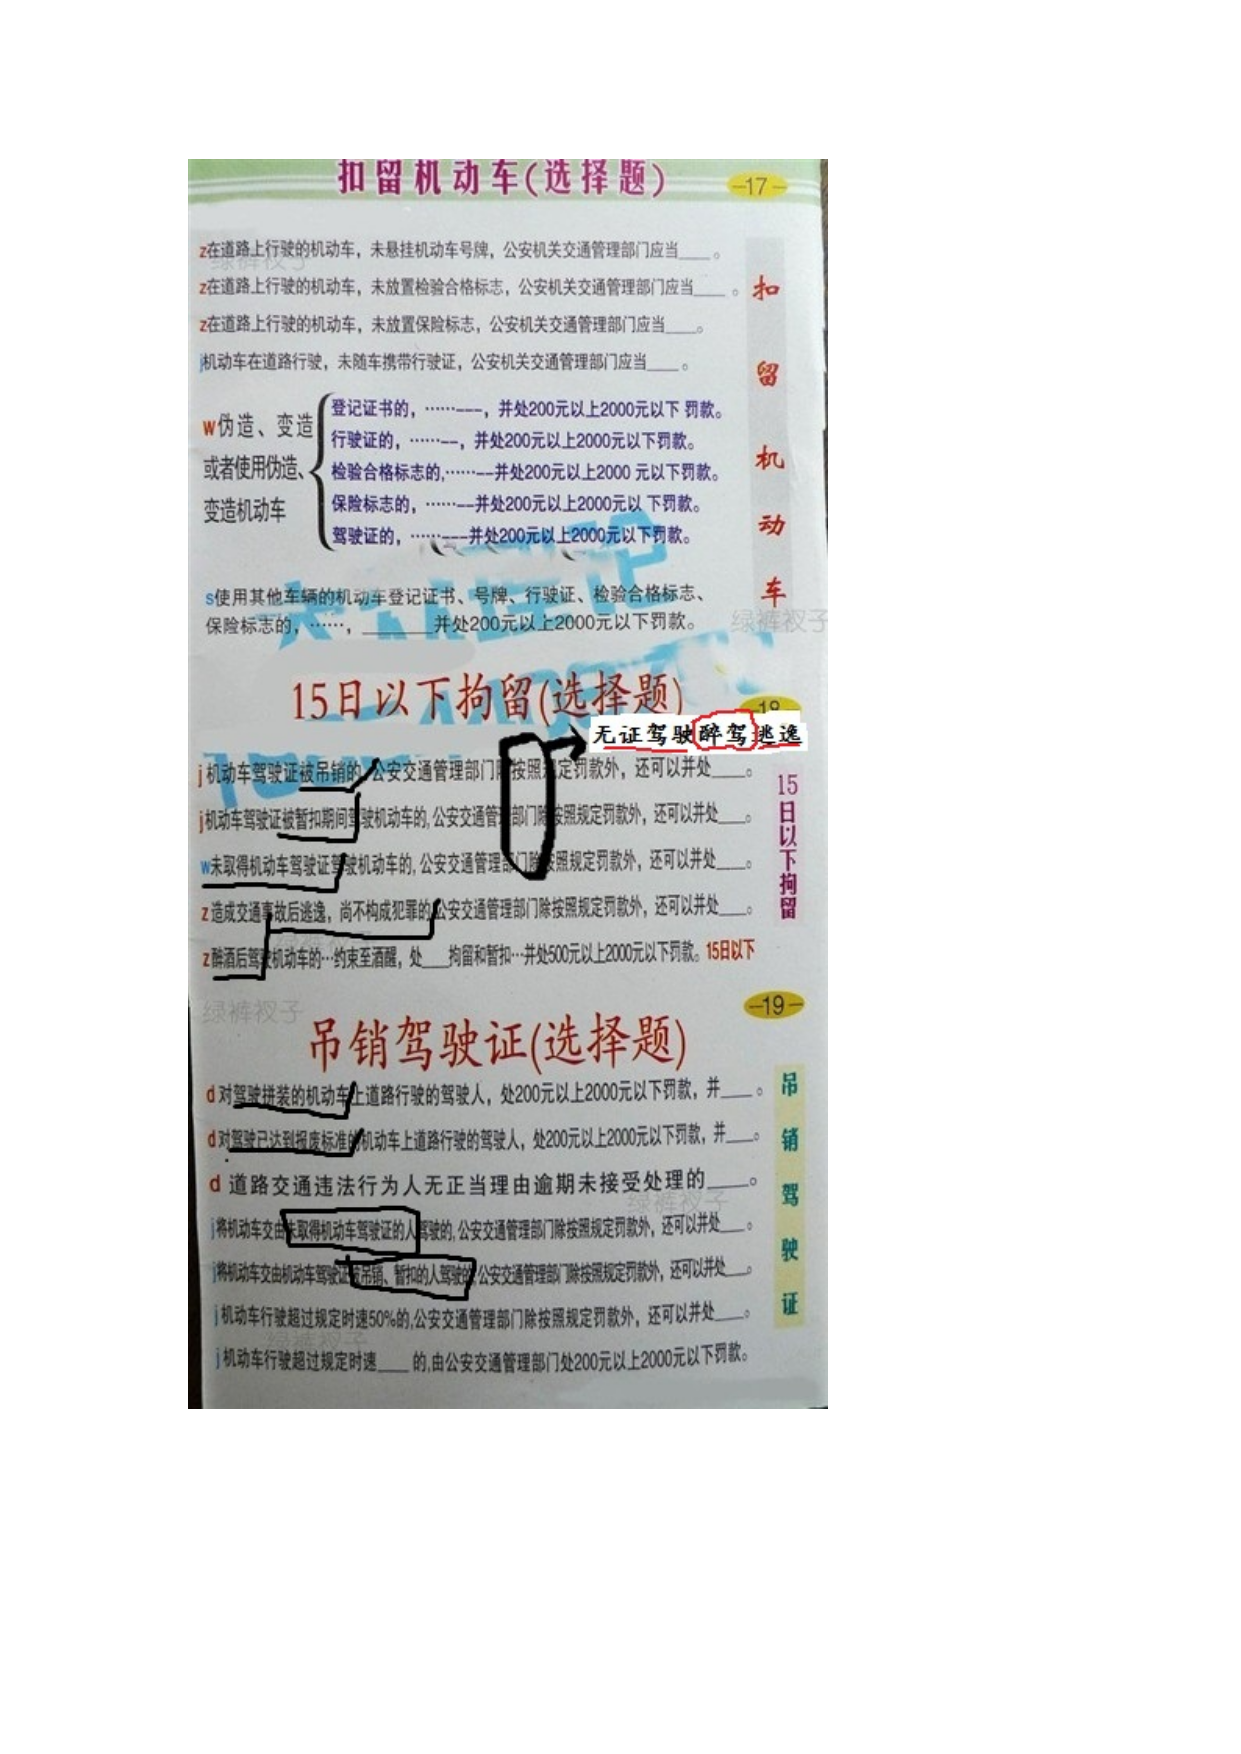 扣留机动车(选择题)
—17—
z在道路上行驶的机动车，未悬挂机动车号牌，公安机关交通管理部门应当____。
绿裤衩子
z在道路上行驶的机动车，未放置检验合格标志，公安机关交通管理部门应当____。
z在道路上行驶的机动车，未放置保险标志，公安机关交通管理部门应当____。
j机动车在道路行驶，未随车携带行驶证，公安机关交通管理部门应当____。
扣留机动车
w伪造、变造
或者使用伪造、
变造机动车
登记证书的，……---，并处200元以上2000元以下罚款。
行驶证的，……--，并处200元以上2000元以下罚款。
检验合格标志的,……--并处200元以上2000元以下罚款。
保险标志的，……--并处200元以上2000元以下罚款。
驾驶证的，……---并处200元以上2000元以下罚款。
s使用其他车辆的机动车登记证书、号牌、行驶证、检验合格标志、
保险标志的，……，________并处200元以上2000元以下罚款。
绿裤衩子
15日以下拘留(选择题)
—18—
无证驾驶醉驾逃逸
j机动车驾驶证被吊销的，公安交通管理部门除按照规定罚款外，还可以并处____。
j机动车驾驶证被暂扣期间驾驶机动车的,公安交通管理部门除按照规定罚款外，还可以并处____。
w未取得机动车驾驶证驾驶机动车的,公安交通管理部门除按照规定罚款外，还可以并处____。
z造成交通事故后逃逸，尚不构成犯罪的,公安交通管理部门除按照规定罚款外，还可以并处____。
z醉酒后驾驶机动车的…约束至酒醒，处____拘留和暂扣…并处500元以上2000元以下罚款。15日以下
15日以下拘留
绿裤衩子
—19—
吊销驾驶证(选择题)
d对驾驶拼装的机动车上道路行驶的驾驶人，处200元以上2000元以下罚款，并____。
d对驾驶已达到报废标准的机动车上道路行驶的驾驶人，处200元以上2000元以下罚款，并____。
d道路交通违法行为人无正当理由逾期未接受处理的____。
绿裤衩子
j将机动车交由未取得机动车驾驶证的人驾驶的,公安交通管理部门除按照规定罚款外，还可以并处____。
j将机动车交由机动车驾驶证被吊销、暂扣的人驾驶的,公安交通管理部门除按照规定罚款外，还可以并处____。
j机动车行驶超过规定时速50%的,公安交通管理部门除按照规定罚款外，还可以并处____。
绿裤衩子
j机动车行驶超过规定时速____的,由公安交通管理部门处200元以上2000元以下罚款。
吊销驾驶证